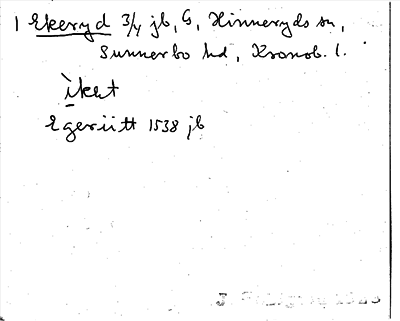 1 Ekeryd 3/4 jb, G, Hinneryds sn,
Sunnerbo hd, Kronob. l.
ìket
Egeriitt 1538 jb